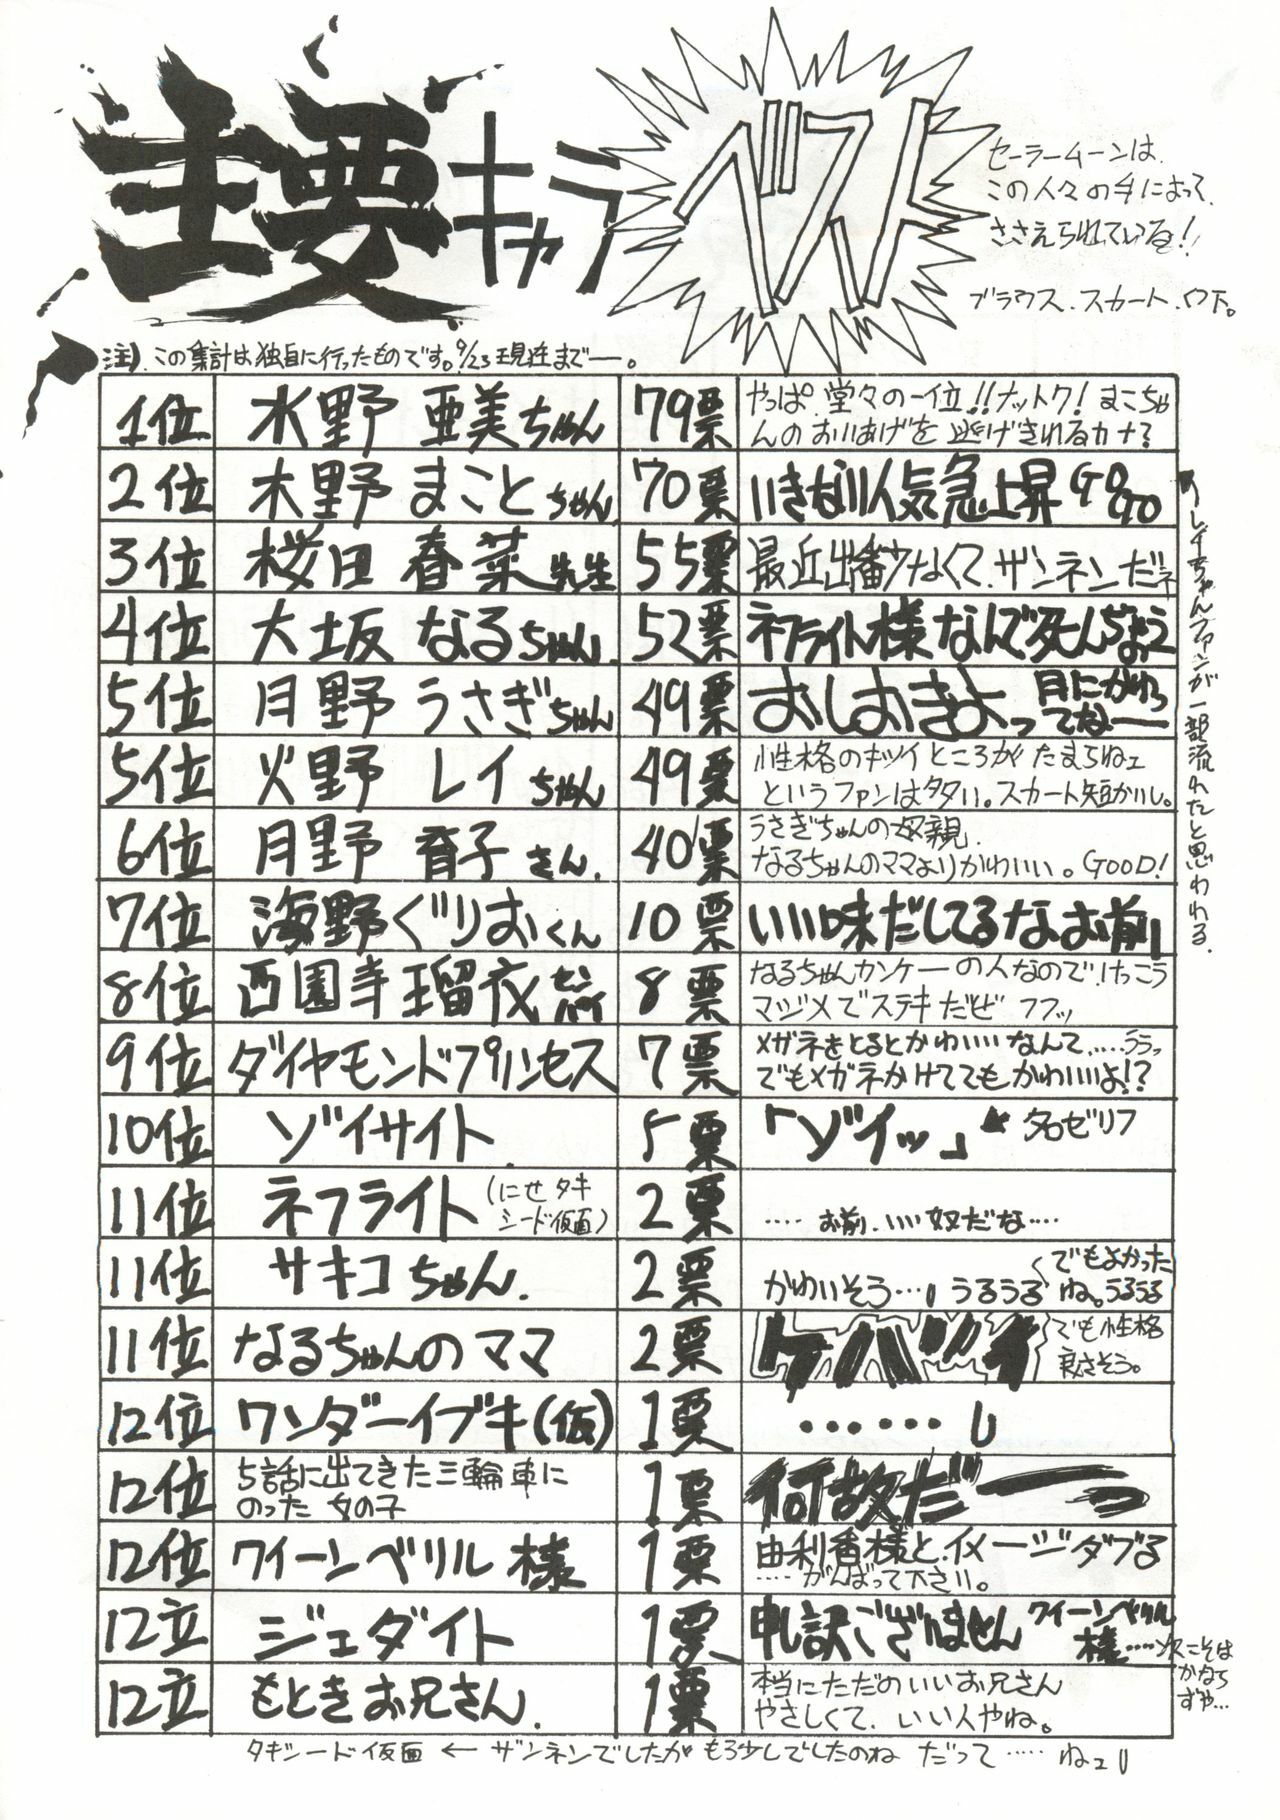 主要キャラ
ベスト
セーラームーンは、
この人々の手によって、
ささえられている!
ブラウス、スカート、くつ下。
注)、この集計は独自に行ったものです。9/23現在まで—。
1位 水野 亜美ちゃん 79票 やっぱ、堂々の一位!!ナットク! まこちゃ
んのおいあげを 逃げきれるカナ?
2位 木野 まことちゃん 70票 いきなり人気急上昇 GO GO
3位 桜田 春菜先生 55票 最近出番少なくて、ザンネンだネ
4位 大坂 なるちゃん 52票 ネフライト様なんで死んぢょう
5位 月野 うさぎちゃん 49票 おしおきよっ 月にかわっ
てな——
5位 火野 レイちゃん 49票 性格のキツイところが たまらねェ
というファンは多い。スカート短かいし。
6位 月野 育子さん 40票 うさぎちゃんの母親、
なるちゃんのママよりかわいい。GOOD!
7位 海野ぐりおくん 10票 いい味だしてるなお前
8位 西園寺瑠衣センパイ 8票 なるちゃんカンケーの人なので、けっこう
マジメでステキだど フフッ
9位 ダイヤモンドプリンセス 7票 メガネをとるとかわいいなんて、……ううっ
でもメガネかけててもかわいいよ!?
10位 ゾイサイト 5票 「ゾイッ」 ← 名ゼリフ
11位 ネフライト (にせタキ
シード仮面) 2票 ‥‥ お前、いい奴だな‥‥
11位 サキコちゃん 2票 かわいそう…、うるうる でもよかった
ね。うるうる
11位 なるちゃんのママ 2票 ケバツイ でも性格
良さそう。
12位 ワンダーイブキ(仮) 1票 ・・・・・・
12位 5話に出てきた三輪車に
のった 女の子 1票 何故だーっ
12位 クイーンベリル 様 1票 由利香様と、イメージダブる
‥‥がんばって下さい。
12位 ジェダイト 1票 申し訳ございません クイーンベリル
様‥‥次こそは
かなら
ずや…
12位 もときお兄さん 1票 本当にただのいいお兄さん
やさしくて、いい人やね。
レイちゃんファンが一部流れたと思われる、
タキシード仮面 ← ザンネンでしたが もう少しでしたのね だって‥‥ ねェ